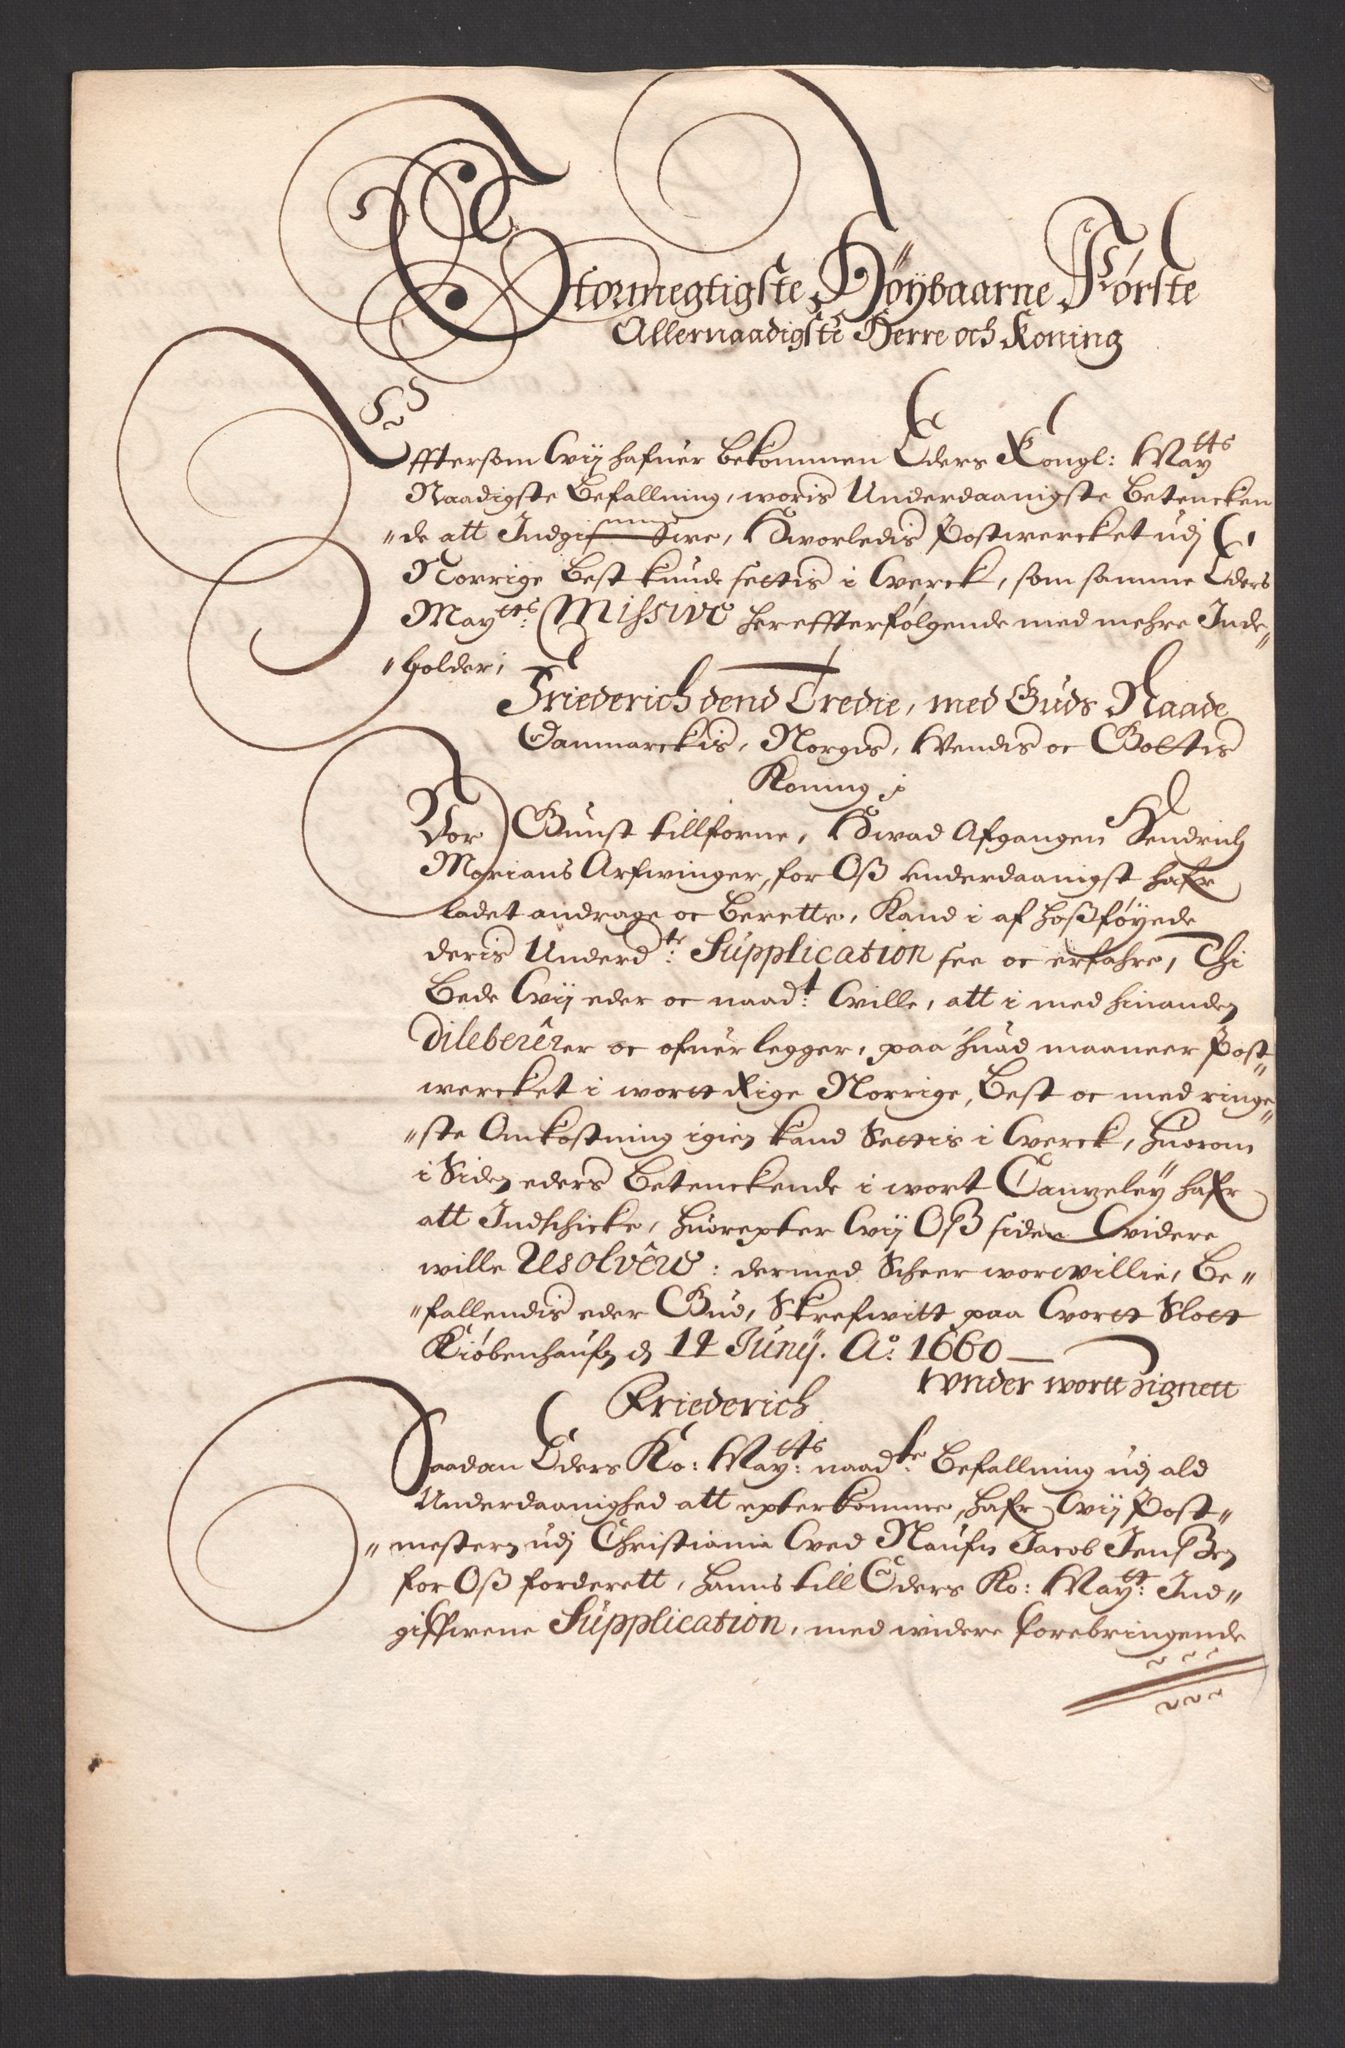 Stormegtigste Høÿbaarne Første
Allernaadigste Herre och Koning
Efftersom Wij hafuer bekommen Eders Kongl: Maytts
Naadigste Befallning, woris Underdaanigste Betencken
"de att Indgifwe, Hworledis Postwercket udj
Norrige best kunde settis i Werck, som samme Eders
Maytts: Missive hereffterfølgende med mehre Inde"
"holder;
Friederich dend Tredie, med Guds Naade
Danmarckis, Norgis, Wendis oc Gottis
Koning;
Vor Gunst tillforne, Hwad Afgangen Hendrich
Morians Arfwinger, for Oß underdaanigst hafr
ladet andrage oc berette, kand i af hoßføyede
deris Underdte: Supplication see oc erfahre, Thi
bede Wij eder oc naadt: Wille, att i med hinanden
dilebererer oc ofuer legger, paa huad maaneer Post"
wercket i wortt Rige Norrige, best oc med ringe"
"ste Omkostning igien kand settis i Werck, huorom
i siden eders Betenckende i wort Cantzeleÿ hafr
att Indschicke, huorepter Wij Oß siden widere
wille Resolvere: dermed scheer wor willie, Be"
"fallendis eder Gud, Skrefwitt paa Wortt Slott
Kiøbenhaufn d 14 Junÿ. Ao: 1660
Under wortt Zignett
Friederich
Saadan Eders Ko: Maytts: naadte: Befallning udj ald
Underdaanighed att epterkomme, hafr Wij Post"
"mestern udj Christiania Wed Naufn Jacob Jenßen
for Oß forderett, hanns till Eders Ko: Maytt: Ind"
giffwene Supplication, med widere forebringende